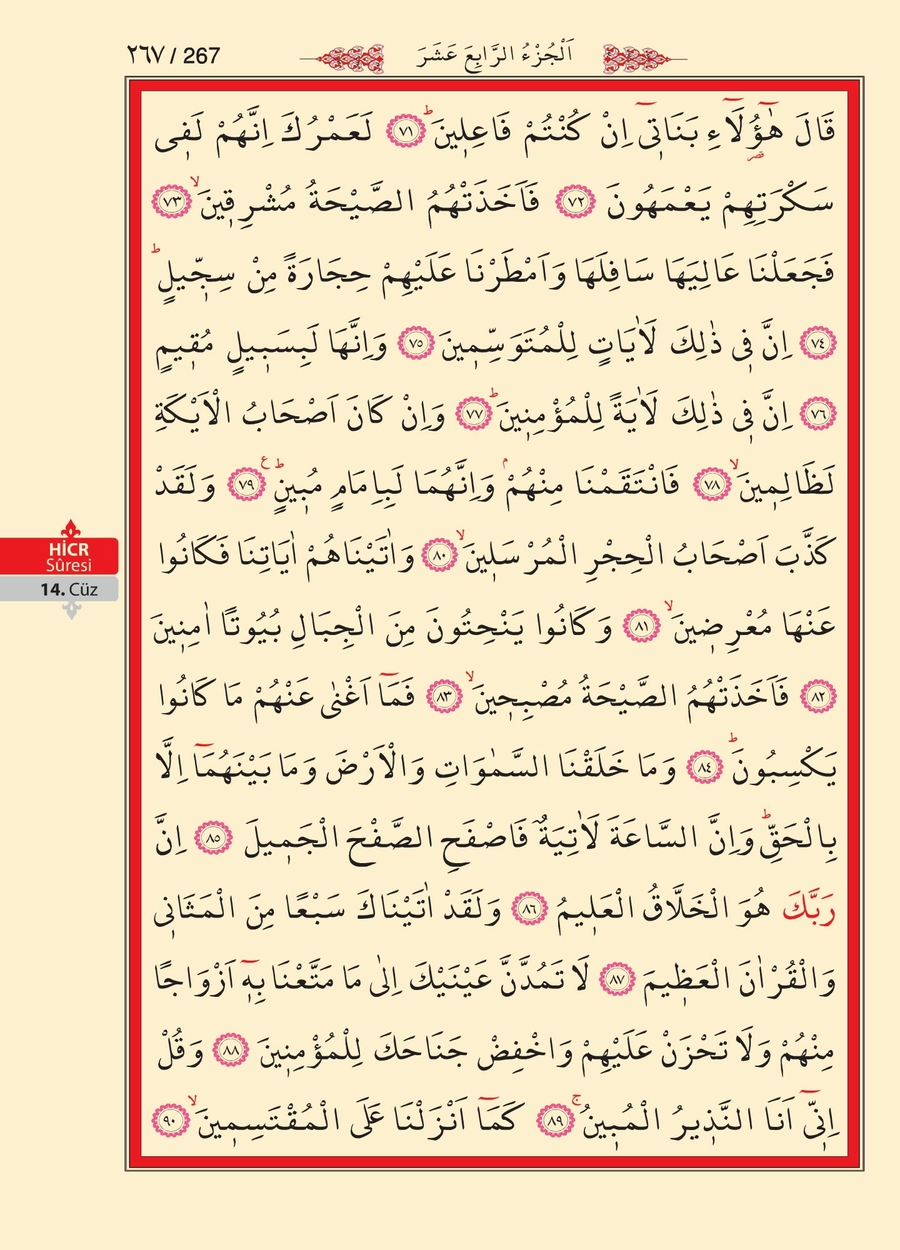 ٢٦٧ / 267
اَلْجُزْءُ الرَّابِعَ عَشَرَ
قَالَ هٰٓؤُ۬لَٓاءِ بَنَاتٖٓى اِنْ كُنْتُمْ فَاعِلٖينَؕ ﴿٧١﴾ لَعَمْرُكَ اِنَّهُمْ لَفٖى
سَكْرَتِهِمْ يَعْمَهُونَ ﴿٧٢﴾ فَاَخَذَتْهُمُ الصَّيْحَةُ مُشْرِقٖينَۙ ﴿٧٣﴾
فَجَعَلْنَا عَالِيَهَا سَافِلَهَا وَاَمْطَرْنَا عَلَيْهِمْ حِجَارَةً مِنْ سِجّٖيلٍؕ
﴿٧٤﴾ اِنَّ فٖى ذٰلِكَ لَاٰيَاتٍ لِلْمُتَوَسِّمٖينَ ﴿٧٥﴾ وَاِنَّهَا لَبِسَبٖيلٍ مُقٖيمٍ
﴿٧٦﴾ اِنَّ فٖى ذٰلِكَ لَاٰيَةً لِلْمُؤْمِنٖينَؕ ﴿٧٧﴾ وَاِنْ كَانَ اَصْحَابُ الْاَيْكَةِ
لَظَالِمٖينَۙ ﴿٧٨﴾ فَانْتَقَمْنَا مِنْهُمْۘ وَاِنَّهُمَا لَبِاِمَامٍ مُبٖينٍؕ ع ﴿٧٩﴾ وَلَقَدْ
كَذَّبَ اَصْحَابُ الْحِجْرِ الْمُرْسَلٖينَۙ ﴿٨٠﴾ وَاٰتَيْنَاهُمْ اٰيَاتِنَا فَكَانُوا
عَنْهَا مُعْرِضٖينَۙ ﴿٨١﴾ وَكَانُوا يَنْحِتُونَ مِنَ الْجِبَالِ بُيُوتًا اٰمِنٖينَ
﴿٨٢﴾ فَاَخَذَتْهُمُ الصَّيْحَةُ مُصْبِحٖينَۙ ﴿٨٣﴾ فَمَٓا اَغْنٰى عَنْهُمْ مَا كَانُوا
يَكْسِبُونَؕ ﴿٨٤﴾ وَمَا خَلَقْنَا السَّمٰوَاتِ وَالْاَرْضَ وَمَا بَيْنَهُمَٓا اِلَّا
بِالْحَقِّؕ وَاِنَّ السَّاعَةَ لَاٰتِيَةٌ فَاصْفَحِ الصَّفْحَ الْجَمٖيلَ ﴿٨٥﴾ اِنَّ
رَبَّكَ هُوَ الْخَلَّاقُ الْعَلٖيمُ ﴿٨٦﴾ وَلَقَدْ اٰتَيْنَاكَ سَبْعًا مِنَ الْمَثَانٖى
وَالْقُرْاٰنَ الْعَظٖيمَ ﴿٨٧﴾ لَا تَمُدَّنَّ عَيْنَيْكَ اِلٰى مَا مَتَّعْنَا بِهٖٓ اَزْوَاجًا
مِنْهُمْ وَلَا تَحْزَنْ عَلَيْهِمْ وَاخْفِضْ جَنَاحَكَ لِلْمُؤْمِنٖينَ ﴿٨٨﴾ وَقُلْ
اِنّٖٓى اَنَا النَّذٖيرُ الْمُبٖينُۚ ﴿٨٩﴾ كَمَٓا اَنْزَلْنَا عَلَى الْمُقْتَسِمٖينَۙ ﴿٩٠﴾
قصر
HİCR
Sûresi
14. Cüz